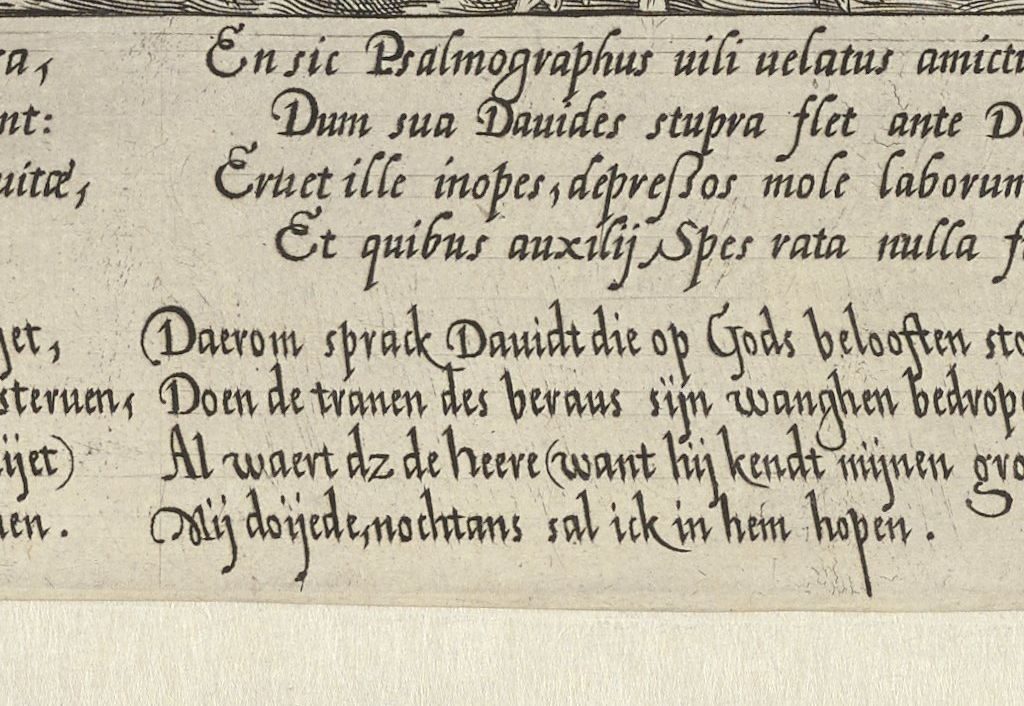 En sic Psalmographus uili uelatus
nt: Dum sua Dauides stupra flet ante
uitæ, Eruet ille inopes, depreßos mole
Et quibus auxilij Spes rata nulla
Daerom sprack Dauidt die op Gods belooften
steruen, Doen de tranen des beraus sijn wanghen
Al waert dz de heere (want hij kendt mijnen
Mij doijede, nochtans sal ick in hem hopen.